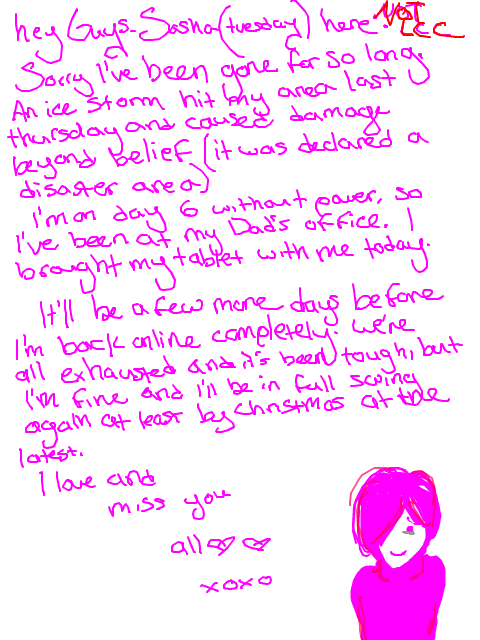 hey Guys - Sasha (tuesday) here. NOT LEC
Sorry I've been gone for so long.
An ice storm hit my area last
thursday and caused damage
beyond belief (it was declared a
disaster area)
I'm on day 6 without power, so
I've been at my Dad's office. I
brought my tablet with me today.
It'll be a few more days before
I'm back online completely. we're
all exhausted and it's been tough, but
I'm fine and I'll be in full swing
again at least by christmas at the
latest.
I love and
miss you
all ♡ ♡
xoxo